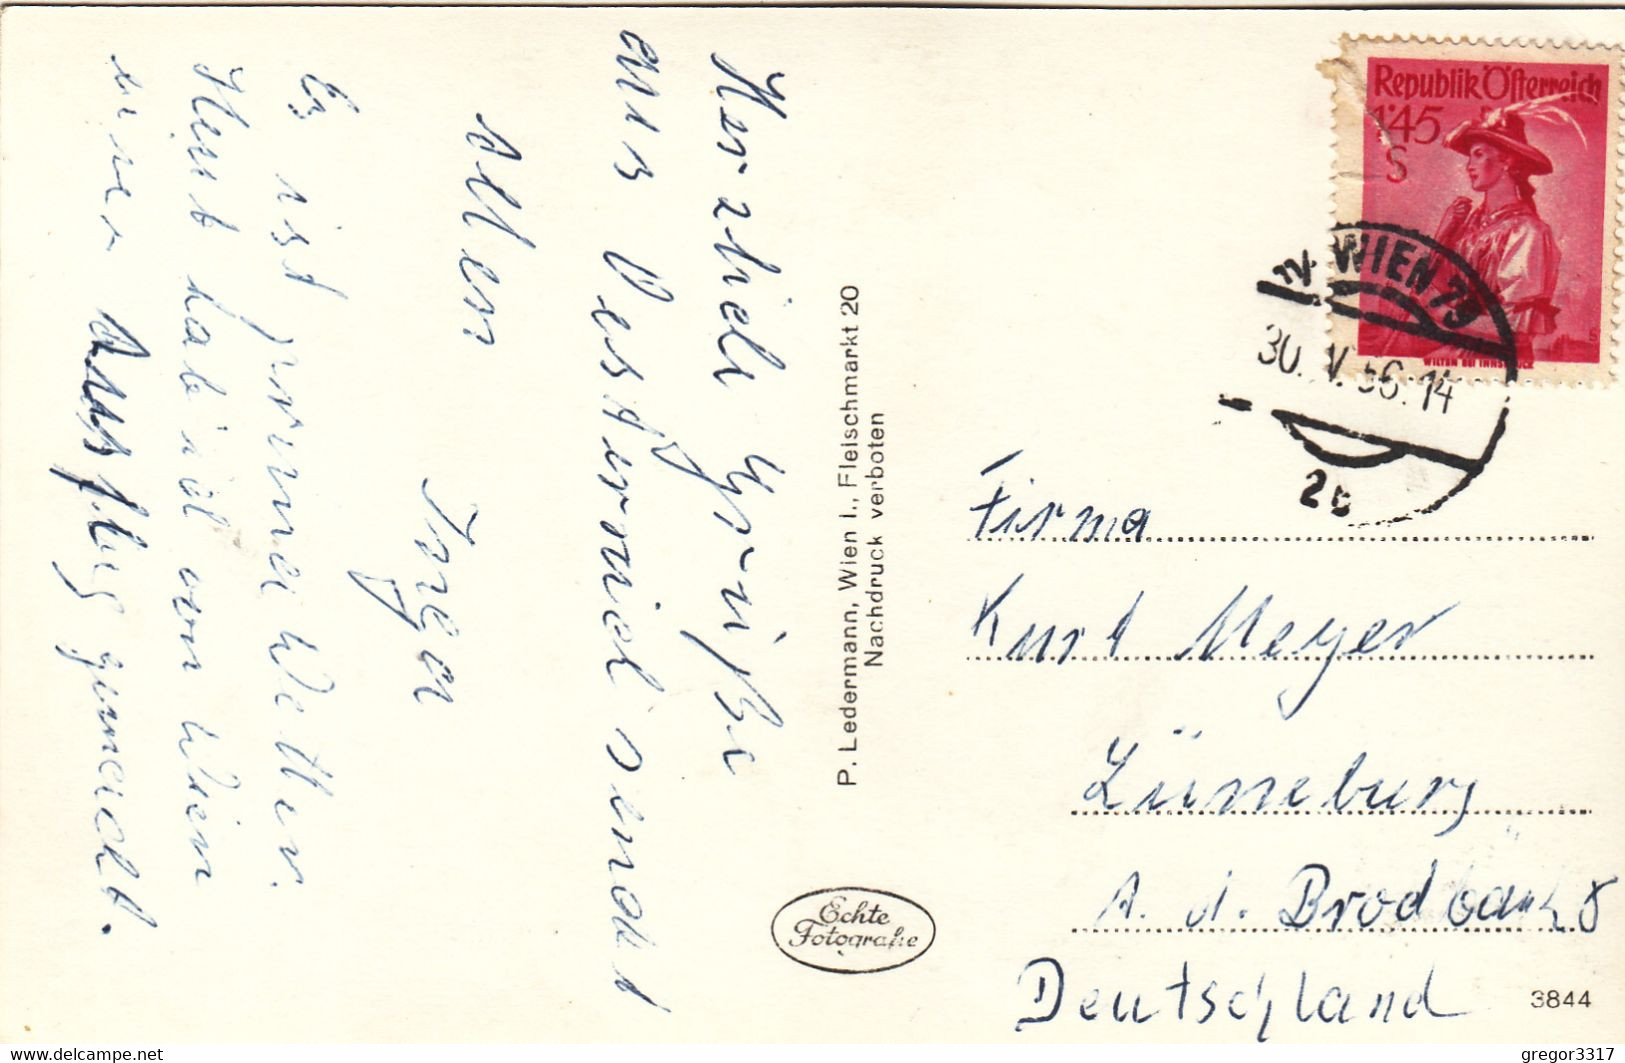 Herzliche Grüße
aus Oesterreich sendet
allen
Inge
Es ist prima Wetter.
Heut hab ich von Wien
einen Ausflug gemacht.
P. Ledermann, Wien I., Fleischmarkt 20
Nachdruck verboten
Echte
Fotografie
Republik Österreich
1'45
S
WILTEN BEI INNSBRUCK
WIEN 79
30. V. 56. 14
Firma
Kurt Meyer
Lüneburg
A. d. Brodbänk
Deutschland
3844
www.delcampe.net
gregor3317